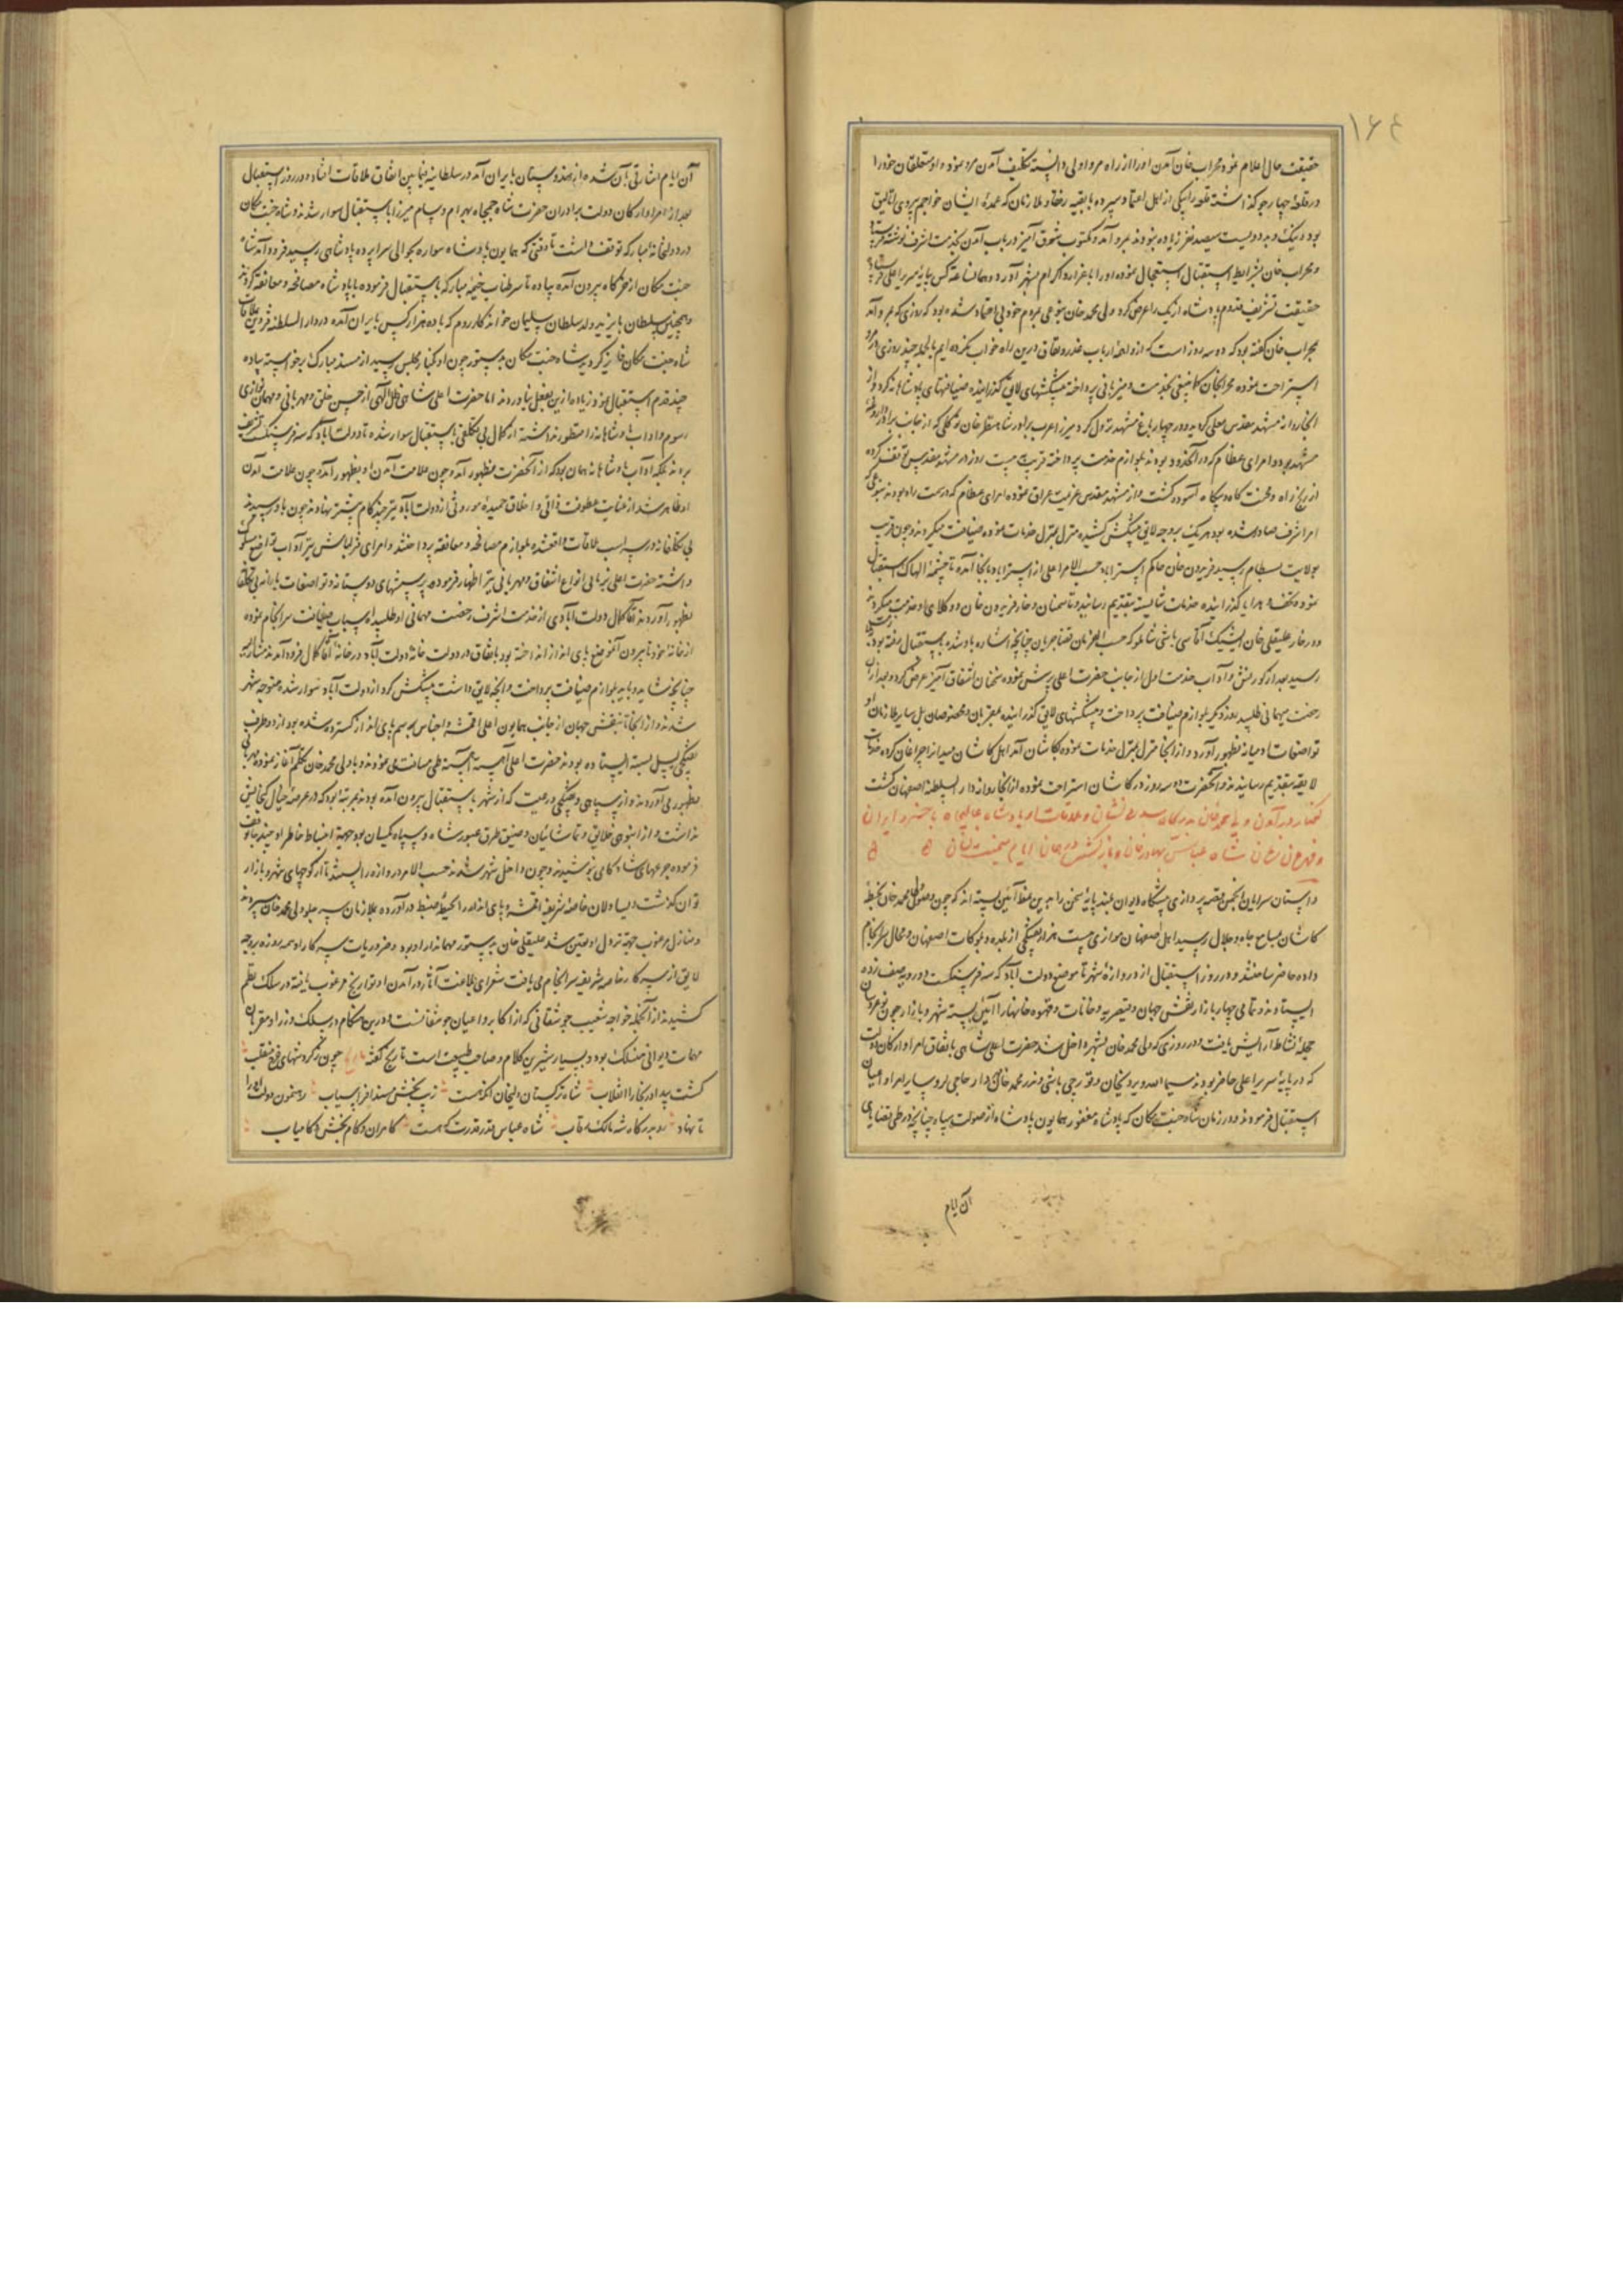 ۱۶۴
حقیقت حال اعلام نمود محراب خان آمدن او را از راه مرو اولی دانسته تکلیف آمدن مرو نمود و او متعلقان خود را
در قلعه چهارجو گذاشته قلعه را بیکی از اهل اعتماد سپرده با بقیه رفقا و ملازمان که عمدهٔ ایشان خواجم یردی اتالیق
بود و نیک و بد دویست سیصد نفر زیاده نبودند بمرو آمد و مکتوب شوق آمیز در باب آمدن بخدمت اشرف نوشته
و محراب خان بشرایط استقبال استعجال نموده او را باعزاز و اکرام بشهر آورد و همان ساعت کس بپایهٔ سریر اعلی
حقیقت تشریف قدوم پادشاه ازبک را عرض کرد ولی محمد خان بنوعی بمردم خود بی اعتماد شده بود که روزی که بمرو آمد
بمحراب خان گفته بود که دو سه روز است که از واهمهٔ ارباب غدر و نفاق درین راه خواب نکرده ایم بالجمله چند روزی در مرو
استراحت نموده محرابخان کما ینبغی بخدمت و میزبانی پرداخته پیشکشهای لایق گذرانیده ضیافتهای پادشاهانه کرد و از
انجا روانهٔ مشهد مقدس معلی گردیده در چهارباغ مشهد نزول کرد میرزا عرب برادر شاه نظر خان توکلی که از جانب برادر داروغهٔ
مشهد بود و امرای عظام که در آنحدود بودند بلوازم خدمت پرداخته قریب به بیست روز در مشهد مقدس توقف کرده
از رنج راه و محنت گاه و بیگاه آسوده گشت و از مشهد مقدس عزیمت عراق نموده امرای عظام که در سمت راه بودند بنوعی که
امر اشرف صادر شده بود هر یک بر وجه لایق پیشکش کشیده منزل بمنزل خدمات نموده ضیافت میکردند و چون قریب
بولایت بسطام رسید فریدون خان حاکم استراباد حسب الامر اعلی از استراباد بانجا آمده تا چشمهٔ الهاک استقبال
نموده تحف و هدایا گذرانیده خدمات شایسته بتقدیم رسانید و تا سمنان و خوار فریدون خان و وکلای او خدمت میکردند
و در خوار علیقلی خان ایشیک آقاسی باشی شاملو که حسب الفرمان قضا جریان چنانچه اشاره یاد شده باستقبال رفته بود
رسید بعد از کورنش و آداب خدمت اول از جانب حضرت اعلی پرسش نموده سخنان اشفاق آمیز عرض کرد و بعد از آن
رخصت میهمانی طلبید روز دیگر بلوازم ضیافت پرداخت و پیشکشهای لایق گذرانیده بمقربان و مخصوصان بل سایر ملازمان او
تواضعات ادمیانه بظهور آورد و از انجا منزل بمنزل خدمات نموده بکاشان آمد اهل کاشان میدان را چراغان کرده خدمات
لایقه بتقدیم رسانیدند و آنحضرت دو سه روز در کاشان استراحت نموده از انجا روانهٔ دار السلطنه اصفهان گشت
گفتار در آمدن ولی محمد خان بدرگاه سدره نشان و ملاقات او با پادشاه عالیجاه با خسرو ایران
و شاه عباس بهادر خان و باز گشتن
داستان سرایان انجمن قصه پردازی و پیشگاه دیوان بلند پایهٔ سخن را بدین نمط آئین بسته اند که چون وصول ولی محمد خان بخطهٔ
کاشان بمسامع جاه و جلال رسید اهل اصفهان موازی بیست هزار تفنگچی از بلده و بلوکات اصفهان و محال سرانجام
داده حاضر ساختند و در روز استقبال از دروازهٔ شهر تا موضع دولت آباد که سه فرسنگست دو رویه صف زده
ایستادند و تمامی چهار بازار نقش جهان و قیصریه و خانات و قهوه خانها را آئین بسته شهر و بازار چون نوعروسان
حجلهٔ نشاط آرایش یافت و در روزی که ولی محمد خان بشهر داخل شد حضرت اعلی شاهی باتفاق امرا و ارکان دولت
که در پایهٔ سریر اعلی حاضر بودند سیما الله ویردیخان و قورچی باشی و نذر محمد خان دار حاجی لر و سایر امرا و اعیان
استقبال فرمودند و در زمان شاه جنت مکان که پادشاه مغفور همایون پادشاه از صولت سپاه چنانچه در طی قضایای
آن ایام
آن ایام اشارتی بآن شده از هندوستان بایران آمد در سلطانیه فیمابین اتفاق ملاقات افتاد در روز استقبال
بعد از امرا و ارکان دولت برادران حضرت شاه جمجاه بهرام و سام میرزا باستقبال سوار شدند و شاه جنت مکان
در دولتخانهٔ مبارکه توقف داشت تا وقتی که همایون پادشاه سواره بحوالی سراپرده پادشاهی رسید فرود آمد شاه
جنت مکان از خرگاه بیرون آمده پیاده تا سر طناب خیمهٔ مبارکه باستقبال فرموده با پادشاه مصافحه و معانقه کردند
و همچنین سلطان بایزید ولد سلطان سلیمان خواندگار روم که با ده هزار کس بایران آمده در دار السلطنه قزوین بملاقات
شاه جنت مکان فایز گردید شاه جنت مکان بدستور چون او کنار مجلس رسید از مسند مبارک برخواسته پیاده
چند قدم استقبال نمود زیاده ازین بفعل نیاوردند اما حضرت اعلی شاهی ظل الهی از حسن خلق و مهربانی و مهمان نوازی
رسوم و اداب پادشاهانه را منظور نداشته از کمال بی تکلفی باستقبال سوار شده تا دولت آباد که سه فرسنگست تشریف
بردند بلکه آداب پادشاهانه همان بود که از آنحضرت بظهور آمد و چون علامت آمدن او بظهور آمد و چون علامت آمدن
او ظاهر شد از غایت عطوفت ذاتی و اخلاق حمیدهٔ موروثی از دولت آباد نیز چند گام پیشتر نهادند چون باو رسیدند
بی تکلفانه در پشت اسب ملاقات واقع شده بلوازم مصافحه و معانقه پرداختند و امرای قزلباش نیز آداب تواضع مسلوک
داشته حضرت اعلی بزبانی انواع اشفاق و مهربانی نیز اظهار فرموده پرسشهای دوستانه و تواضعات یارانه بی تکلفانه
بظهور آوردند آقا کمال دولت آبادی از خدمت اشرف رخصت مهمانی او طلبیده اسباب ضیافت سرانجام نموده
از خانهٔ خود تا بیرون آنموضع پای انداز انداخته بود باتفاق در دولت خانهٔ دولت آباد در خانهٔ آقا کمال فرود آمدند مشارالیه
چنانچه شاید و باید بلوازم ضیافت پرداخت و آنچه لایق دانست پیشکش کرد از دولت آباد سوار شده متوجه شهر
شدند و از انجا تا نقش جهان از جانب همایون اعلی اقمشه و اجناس برسم پای انداز گسترده شده بود از دو طرف
تفنگچی پیل بسته ایستاده بودند حضرت اعلی آهسته آهسته طی مسافت می نمودند و با ولی محمد خان تکلم آغاز نموده مهربانی
بظهور می آوردند و از سپاهی و تفنگچی و رعیت که از شهر باستقبال بیرون آمده بودند بمرتبهٔ بود که در عرصهٔ خیال گنجایش
نداشت و از انبوهی خلایق و تماشائیان و ضیق طرق عبور شاه و سپاه یکسان بود جهة انبساط خاطر او چند جا توقف
فرموده جرعهای شادکامی نوشیدند و چون داخل شهر شدند حسب الامر دروازه را بستند تا از کوچهای شهر و بازار
توان گذشت و یساولان خاصهٔ شریفه اقمشه و پای انداز را بحیطهٔ ضبط در آورده بملازمان سپه جلو ولی محمد خان سپردند
و منازل مرغوب جهة نزول او تعیین شد علیقلی خان بدستور مهماندار او بود و ضروریات سرکار او همه روزه بر وجه
لایق از سرکار خاصه شریفه سرانجام می یافت شعرای بلاغت آثار در آمدن او تواریخ مرغوب یافته در سلک نظم
کشیدند از آنجمله خواجه شعیب جوشقانی که از اکابر و اعیان جوشقانست و درین هنگام در سلک وزرا و مقربان
مهمات دیوانی منسلک بود و بسیار شیرین کلام و صاحب طبیعت است تاریخ گفته چون ز گردشهای چرخ منقلب
گشت پیدا در بخارا انقلاب شاه ترکستان ولیخان انکه هست زیب بخش مسند افراسیاب رهنمون دولت او را
تا نهاد رو بدرگاه شه مالک رقاب شاه عباس قدر قدرت که هست کامران و کام بخش و کامیاب